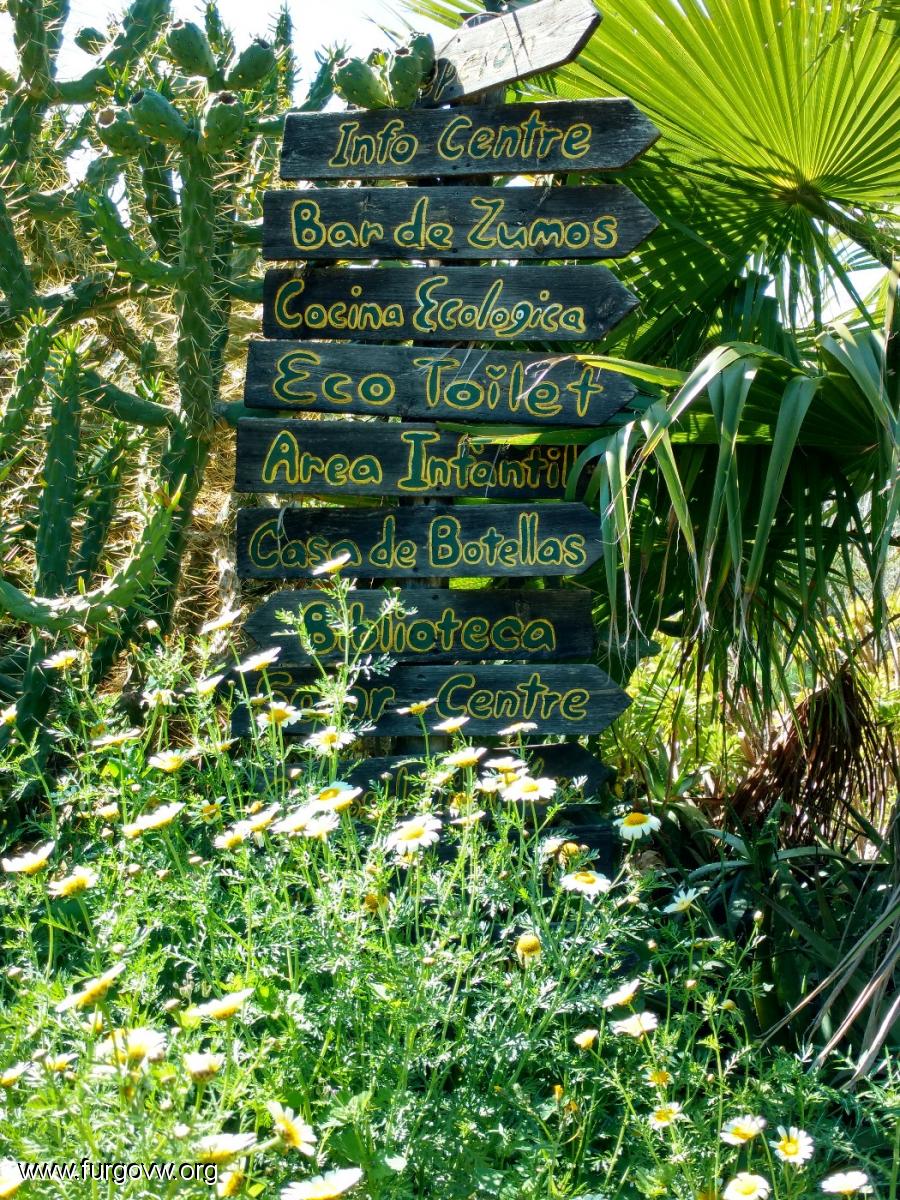 Info Centre
Bar de Zumos
Cocina Ecologica
Eco Toilet
Area Infantil
Casa de Botellas
Biblioteca
Centre
www.furgovw.org